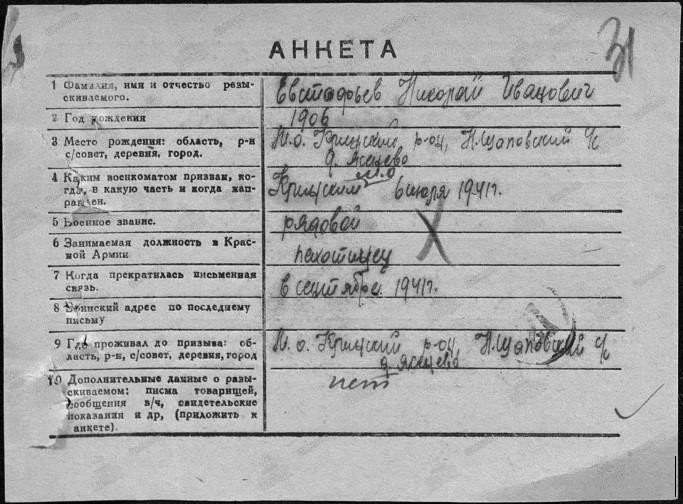 31
АНКЕТА
1 Фамилия, имя и отчество разыскиваемого.
Евстафьев Николай Иванович
2 Год рождения
1906
3 Место рождения: область, р-н
с/совет, деревня, город.
М.о. р-он, с/с
д.
4 Каким военкоматом призван, когда, в какую часть и когда направлен.
м.о
6 июля 1941г.
5 Военное звание.
рядовой
6 Занимаемая должность в Красной Армии
пехотинец
7 Когда прекратилась письменная
связь.
в сентябре 1941г.
8 Воинский адрес по последнему
письму
9 Где проживал до призыва: область, р-н, с/совет, деревня, город
М.о. р-он, с/с
д.
10 Дополнительные данные о разыскиваемом: писма товарищей,
сообщения в/ч, свидетельские
показания и др, (приложить к
анкете).
нет